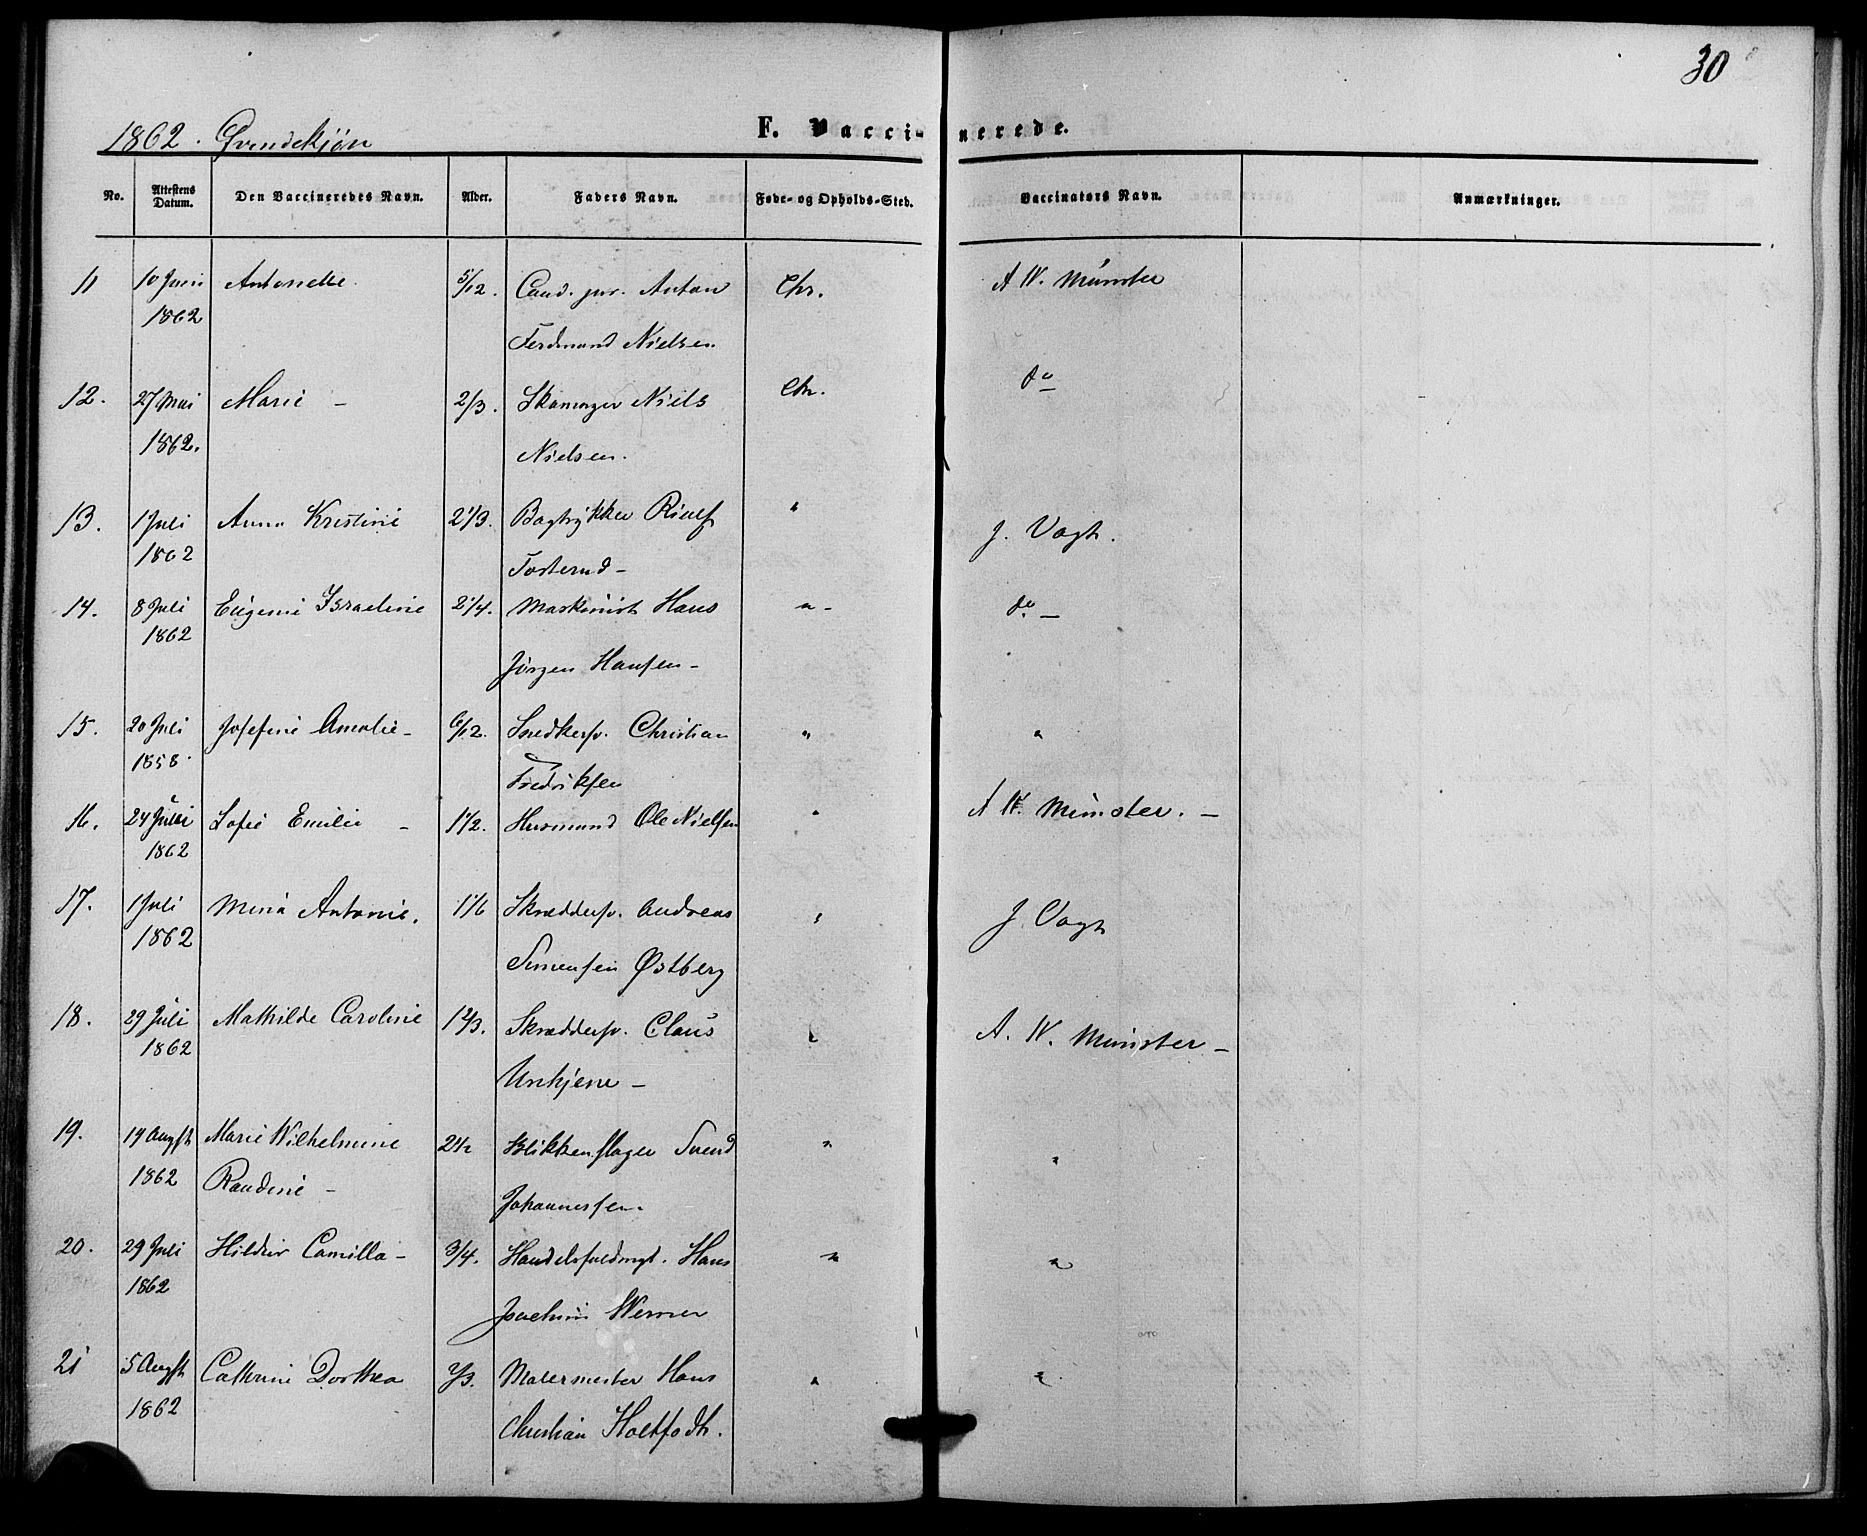 30
1862. Qvindekjøn
F. Vaccinerede.
No. Attestens Datum. Den Vaccineredes Navn. Alder. Faders Navn. Føde- og Opholds-Sted. Vaccinators Navn. Anmærkninger.
11 10 Juni Antonette. 5/12. Cand. jur. Anton Chr. A W. Münster
1862 Ferdinand Nielsen
12. 27 Mai Marie – 2/3. Niels Chr. do
1862. Nielsen.
13. 1 Juli Anna Kristine 2 1/3. Bogtrykker " J. Vogt.
1862 Fosterud –
14. 8 Juli Eugenie Israeline 2 1/4. Maskinist Hans " – do –
1862 Jørgen Hansen –
15. 20 Juli Josefine Amalie – 6/12. Snedkersv. Christian " "
1858. Fredriksen
16. 24 Juli Sofie Emilie – 1 1/2. Husmand Ole Nielsen " A W. Münster. –
1862
17. 1 Juli Antonie. 1 1/6 Skræddersv. Andreas " J Vogt
1862 Simensen Østberg
18. 29 Juli Mathilde Caroline 1 2/3. Skræddersv. Claus " A. W. Münster –
1862 –
19. 19 Augst Marie Wilhelmine 2 1/2 Blikkenslager Svend " "
1862 Randine – Johannessen.
20. 29 Juli Camilla – 3/4. Handelsfuldmgt. Hans " "
1862 Joachim Werner
21 5 Augst Cathrine Dorthea 2/3. Malermester Hans " "
1862 Christian Holtfodt.